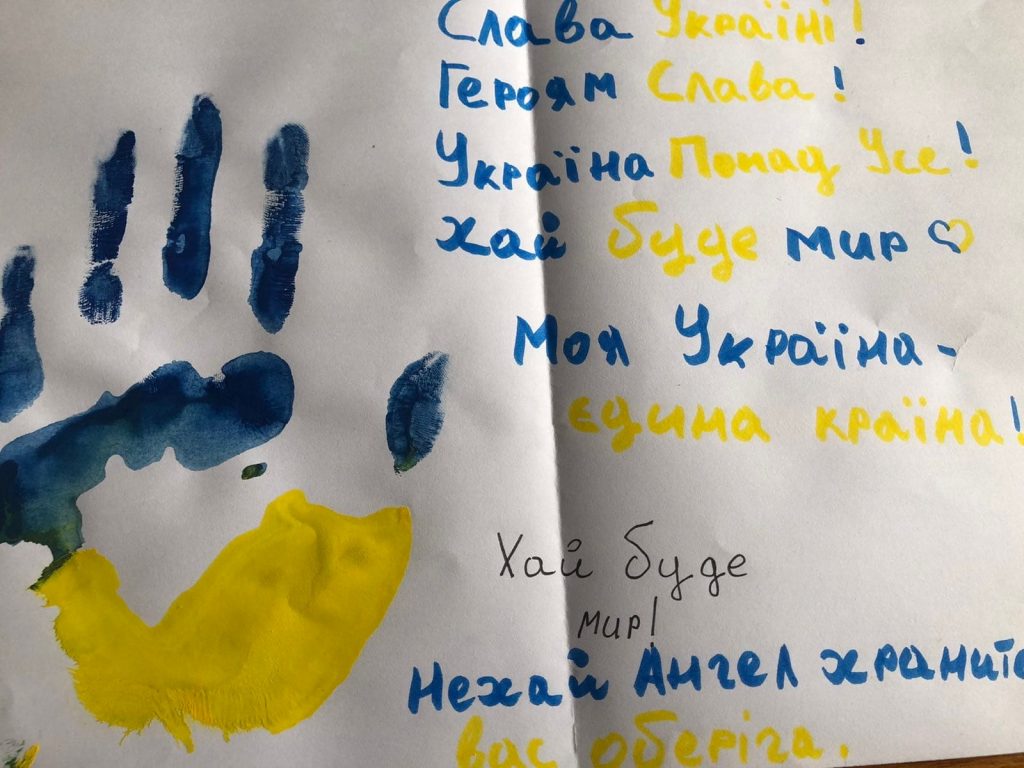 Слава Україні!
Героям Слава!
Україна Понад Усе!
Хай буде мир
Моя Україна-
єдина країна!
Хай буде
мир!
Нехай Ангел храните
вас оберіга.